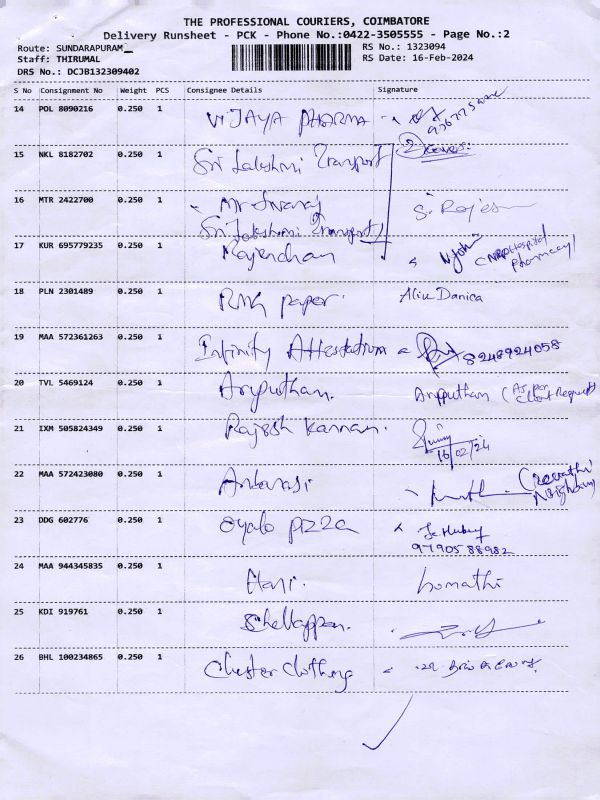 THE PROFESSIONAL COURIERS, COIMBATORE
Delivery Runsheet - PCK - Phone No.:0422-3505555 - Page No.:2
Route: SUNDARAPURAM
Staff: THIRUMAL
DRS No.: DCJB132309402
RS No.: 1323094
RS Date: 16-Feb-2024
S No Consignment No Weight PCS Consignee Details Signature
14 POL 8090216 0.250 1 VIJAYA PHARMA
15 NKL 8182702 0.250 1 Sri Lakshmi Transport 2 covers.
16 MTR 2422700 0.250 1 Mr Swaraj S. Rajes
Sri Lakshmi Transport
17 KUR 695779235 0.250 1 Rajendhan Hospital Pharmacy)
18 PLN 2301489 0.250 1 RNG paper. Danica
19 MAA 572361263 0.250 1 Infinity Attestation 8248924058
20 TVL 5469124 0.250 1 Arypu­than. (As per Client Request)
21 IXM 505824349 0.250 1 Rajesh Kannan. 16/02/24
22 MAA 572423080 0.250 1 (Revathi Neighbour)
23 DDG 602776 0.250 1 Oyalo pizza
9790588982
24 MAA 944345835 0.250 1 Hari.
25 KDI 919761 0.250 1 Shellappan.
26 BHL 100234865 0.250 1 Chester Clothing